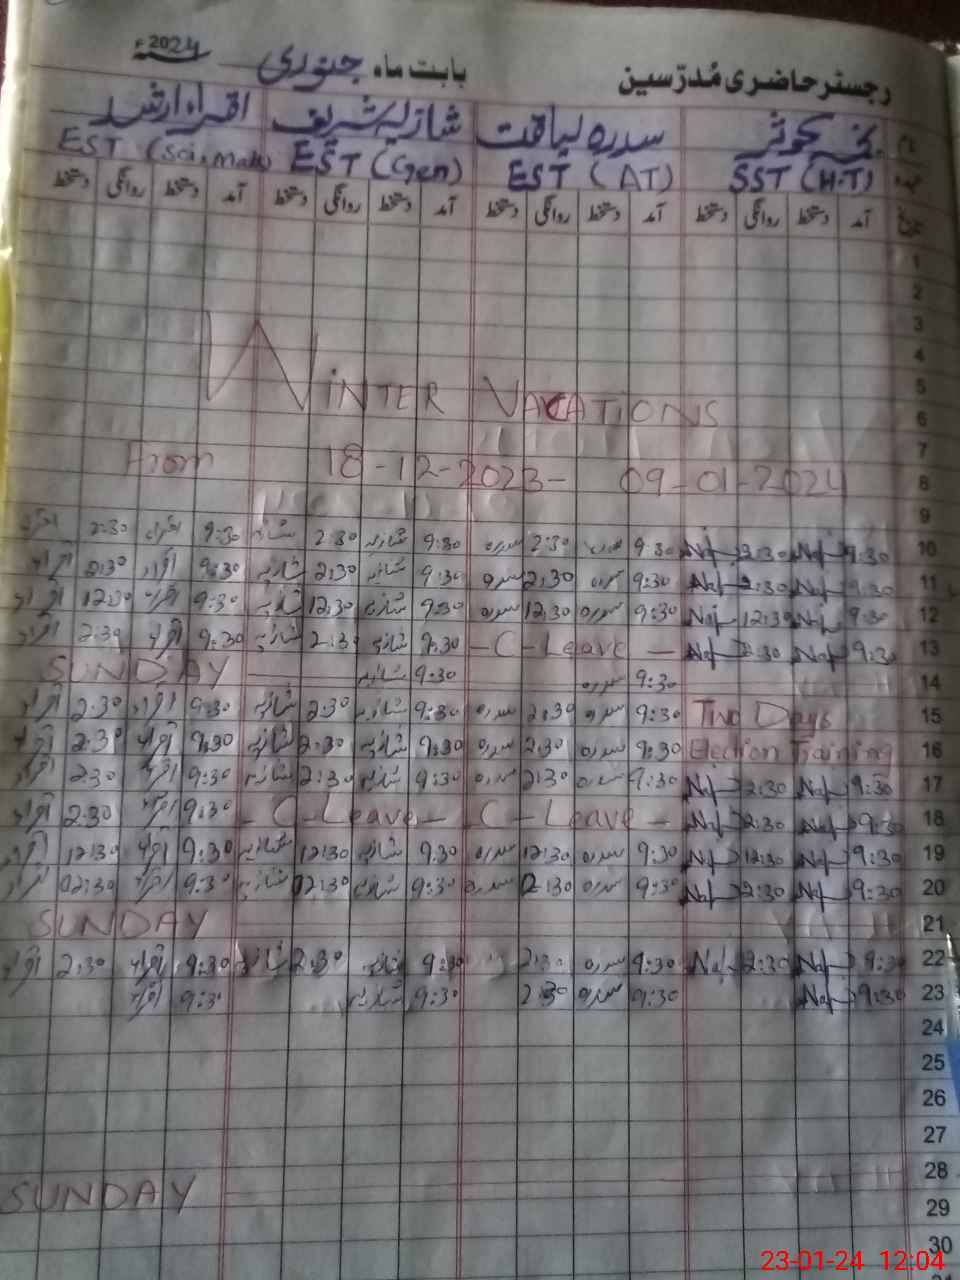 رجسٹر حاضری مُدرّسین بابت ماہ جنوری 2024ء
سدرہ لیاقت شازیہ شریف اقراء ارشد
SST (H.T) EST (AT) EST (Gen) EST (Sci.Math)
تاریخ آمد دستخط روانگی دستخط آمد دستخط روانگی دستخط آمد دستخط روانگی دستخط آمد دستخط روانگی دستخط
1
2
3
4
5
WINTER VACATIONS
6
7
From 18-12-2023- 09-01-2024
8
9
10 9:30 3:30 9:30 سدرہ 2:30 سدرہ 9:30 شازیہ 2:30 شازیہ 9:30 اقراء 2:30 اقراء
11 9:30 2:30 9:30 سدرہ 2:30 سدرہ 9:30 شازیہ 2:30 شازیہ 9:30 اقراء 2:30 اقراء
12 9:30 12:30 9:30 سدرہ 12:30 سدرہ 9:30 شازیہ 12:30 شازیہ 9:30 اقراء 12:30 اقراء
13 9:30 2:30 - C - Leave - 9:30 شازیہ 2:30 شازیہ 9:30 اقراء 2:30 اقراء
14 9:30 سدرہ 9:30 شازیہ SUNDAY
15 Two Days 9:30 سدرہ 2:30 سدرہ 9:30 شازیہ 2:30 شازیہ 9:30 اقراء 2:30 اقراء
16 Election Training 9:30 سدرہ 2:30 سدرہ 9:30 شازیہ 2:30 شازیہ 9:30 اقراء 2:30 اقراء
17 9:30 2:30 9:30 سدرہ 2:30 سدرہ 9:30 شازیہ 2:30 شازیہ 9:30 اقراء 2:30 اقراء
18 9:30 2:30 C - Leave - - C - Leave - 9:30 اقراء 2:30 اقراء
19 9:30 12:30 9:30 سدرہ 12:30 سدرہ 9:30 شازیہ 12:30 شازیہ 9:30 اقراء 12:30 اقراء
20 9:30 2:30 9:30 سدرہ 2:30 سدرہ 9:30 شازیہ 02:30 شازیہ 9:30 اقراء 02:30 اقراء
21 SUNDAY
22 9:30 2:30 9:30 سدرہ 2:30 9:30 شازیہ 2:30 شازیہ 9:30 اقراء 2:30 اقراء
23 9:30 9:30 سدرہ 2:30 9:30 شازیہ 9:30 اقراء
24
25
26
27
28 SUNDAY
29
30
23-01-24 12:04